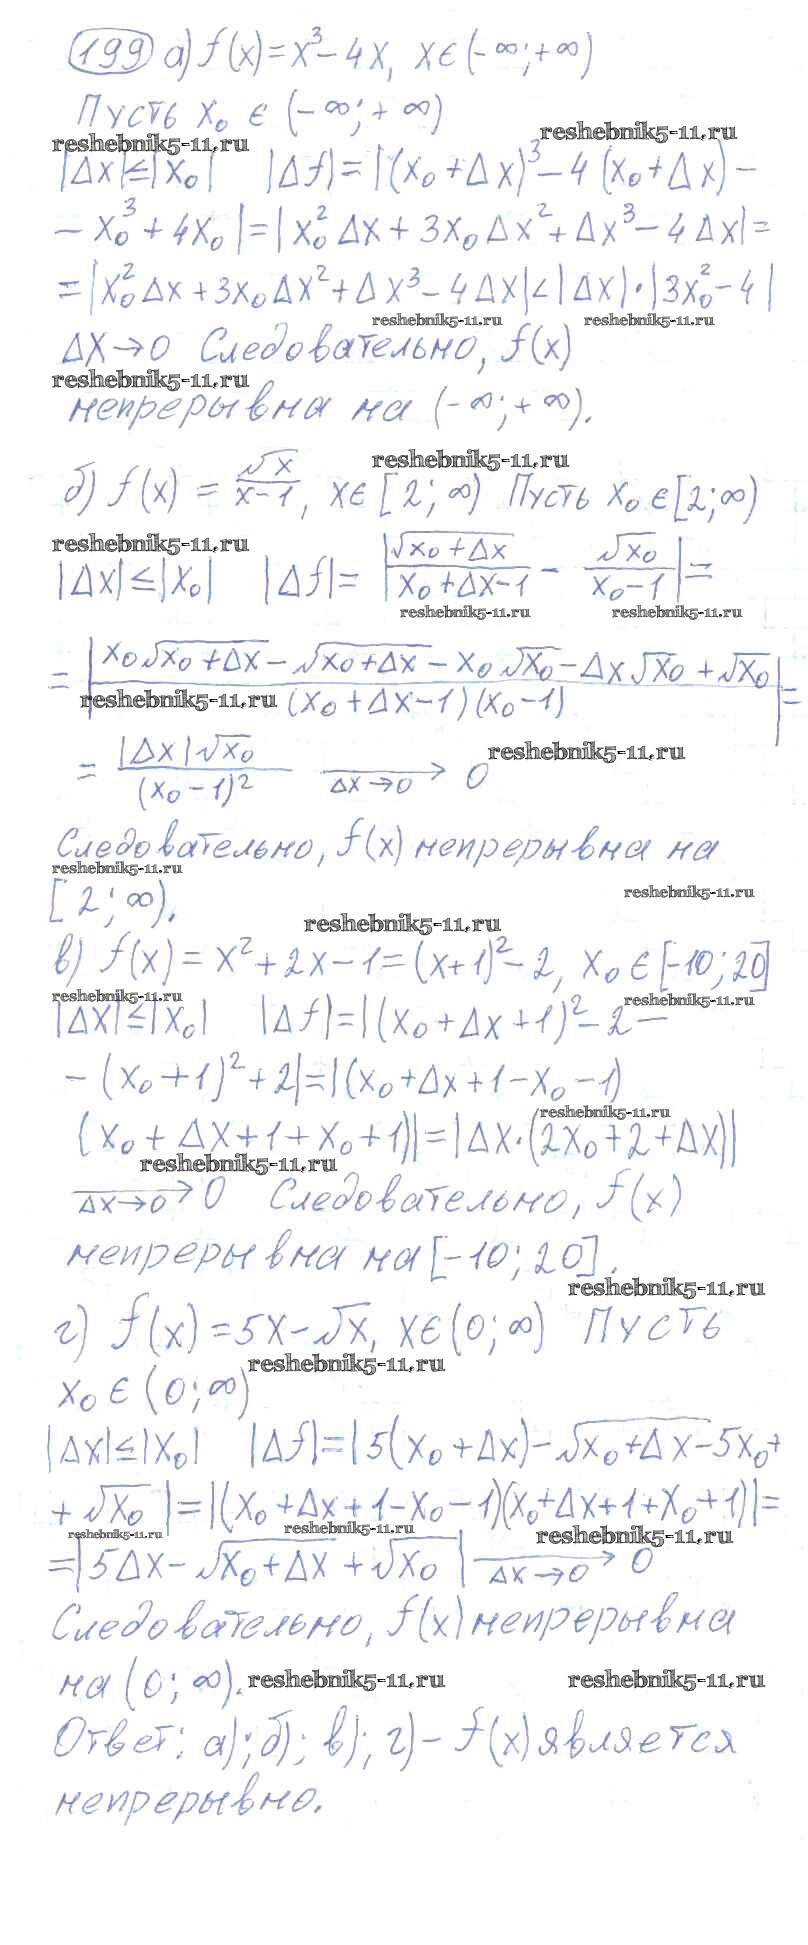 199 а) f(x) = x³ - 4x, x ∈ (-∞; +∞)
Пусть x₀ ∈ (-∞; +∞)
reshebnik5-11.ru reshebnik5-11.ru
|Δx| ≤ |x₀| |Δf| = |(x₀ + Δx)³ - 4(x₀ + Δx) -
- x₀³ + 4x₀| = |x₀²Δx + 3x₀Δx² + Δx³ - 4Δx| =
= |x₀²Δx + 3x₀Δx² + Δx³ - 4Δx| < |Δx| · |3x₀² - 4|
reshebnik5-11.ru reshebnik5-11.ru
Δx → 0 Следовательно, f(x)
reshebnik5-11.ru
непрерывна на (-∞; +∞).
reshebnik5-11.ru
б) f(x) = √x / (x-1), x ∈ [2; ∞) Пусть x₀ ∈ [2; ∞)
reshebnik5-11.ru
|Δx| ≤ |x₀| |Δf| = |√(x₀ + Δx) / (x₀ + Δx - 1) - √x₀ / (x₀ - 1)| =
reshebnik5-11.ru reshebnik5-11.ru
= |(x₀√(x₀ + Δx) - √(x₀ + Δx) - x₀√x₀ - Δx√x₀ + √x₀) / ((x₀ + Δx - 1)(x₀ - 1))| =
reshebnik5-11.ru
= |Δx|√x₀ / (x₀ - 1)² → 0 (Δx → 0)
reshebnik5-11.ru
Следовательно, f(x) непрерывна на
reshebnik5-11.ru
[2; ∞).
reshebnik5-11.ru
reshebnik5-11.ru
в) f(x) = x² + 2x - 1 = (x+1)² - 2, x₀ ∈ [-10; 20]
reshebnik5-11.ru reshebnik5-11.ru
|Δx| ≤ |x₀| |Δf| = |(x₀ + Δx + 1)² - 2 -
- (x₀ + 1)² + 2| = |(x₀ + Δx + 1 - x₀ - 1)
reshebnik5-11.ru
(x₀ + Δx + 1 + x₀ + 1)| = |Δx · (2x₀ + 2 + Δx)|
reshebnik5-11.ru
→ 0 (Δx → 0) Следовательно, f(x)
непрерывна на [-10; 20].
reshebnik5-11.ru
г) f(x) = 5x - √x, x ∈ (0; ∞) Пусть
reshebnik5-11.ru
x₀ ∈ (0; ∞)
|Δx| ≤ |x₀| |Δf| = |5(x₀ + Δx) - √(x₀ + Δx) - 5x₀ +
+ √x₀| = |(x₀ + Δx + 1 - x₀ - 1)(x₀ + Δx + 1 + x₀ + 1)| =
reshebnik5-11.ru reshebnik5-11.ru reshebnik5-11.ru
= |5Δx - √(x₀ + Δx) + √x₀| → 0 (Δx → 0)
Следовательно, f(x) непрерывна
на (0; ∞).
reshebnik5-11.ru reshebnik5-11.ru
Ответ: а); б); в); г) - f(x) является
непрерывно.